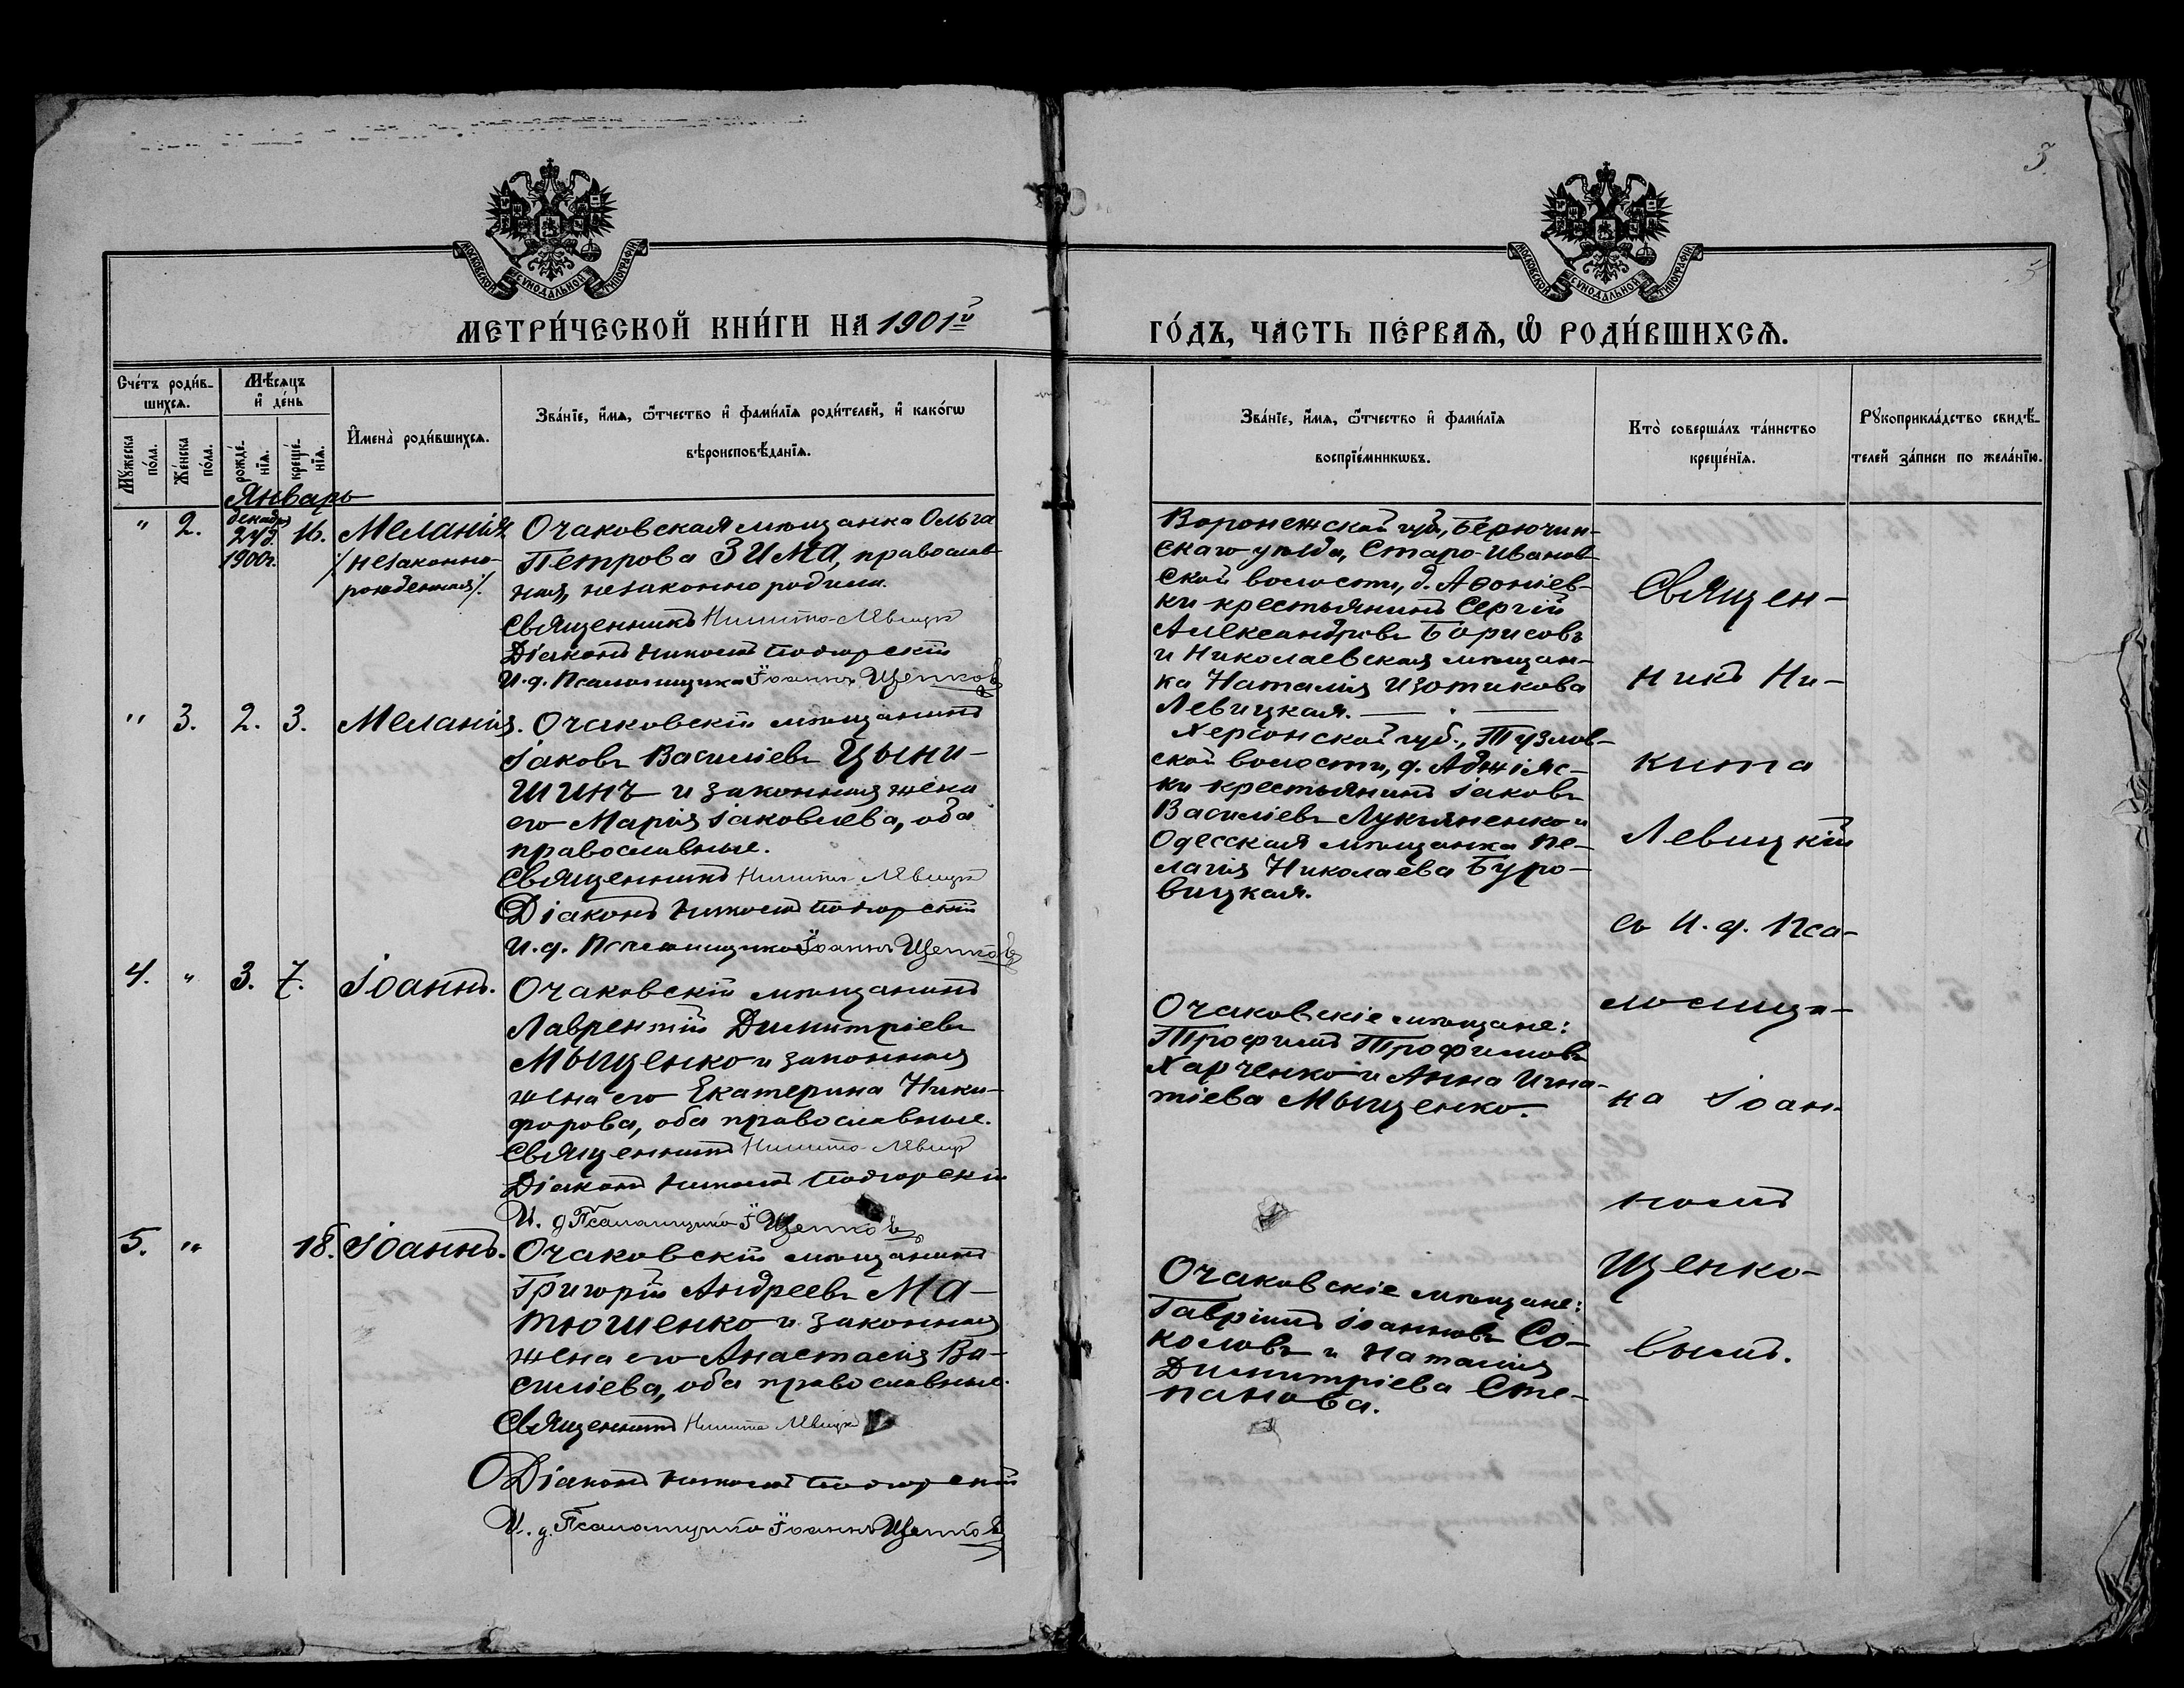 3
МОСКОВСКОЙ СѴНОДАЛЬНОЙ ТИПОГРАФІИ
МОСКОВСКОЙ СѴНОДАЛЬНОЙ ТИПОГРАФІИ
МЕТРИ́ЧЕСКОЙ КНИ́ГИ НА 1901й
ГО́ДЪ, ЧАСТЬ ПЕ́РВАЯ, Ѿ РОДИ́ВШИХСЯ.
Сче́тъ роди́в-
шихся.
Мѣсяцъ
и де́нь
Мꙋжеска по́ла.
Же́нска по́ла.
рожде́нїя.
креще́нїя.
Имена̀ роди́вшихся.
Зва́нїе, и́мя, ѻ҆́тчество и фами́лїя роди́телей, и како́гѡ
вѣроисповѣ́данїя.
Зва́нїе, и́мя, ѻ҆́тчество и фами́лїя
воспрїе́мникѡвъ.
Кто̀ соверша́лъ та́инство
креще́нїя.
Рꙋкоприкла́дство свидѣ́-
телей за́писи по жела́нїю.
Январь
" 2. декабр. 24д. 1900г. 16. Меланія
/незаконно-
рожденная/.
Очаковская мѣщанка Ольга
Петрова ЗИМА, православ-
ная, незаконно родила.
Священникъ Никита Левицкій
Діаконъ Николай Подгорскій
И.д. Псаломщика Іоаннъ Щепковъ
Воронежской губ., Бѣрючин-
скаго уѣзда, Старо-Иванов-
ской волости, д. Аѳоніев-
ки крестьянинъ Сергій
Александровъ Борисовъ
и Николаевская мѣщан-
ка Наталія Изотикова
Левицкая.
" 3. 2. 3. Меланія.
Очаковскій мѣщанинъ
Іаковъ Василіевъ Цыни-
шинъ и законная жена
его Марія Іаковлева, оба
православные.
Священникъ Никита Левицкій
Діаконъ Николай Подгорскій
И.д. Псаломщика Іоаннъ Щепковъ
Херсонской губ., Тузлов-
ской волости, д. Аджіяс-
ки крестьянинъ Іаковъ
Василіевъ Лукьяненко и
Одесская мѣщанка Пе-
лагія Николаева Буро-
вицкая.
4. " 3. 7. Іоаннъ.
Очаковскій мѣщанинъ
Лаврентій Димитріевъ
Мыценко и законная
жена его Екатерина Ники-
форова, оба православные.
Священникъ Никита Левицкій
Діаконъ Николай Подгорскій
И. д Псаломщика І Щепковъ
Очаковскіе мѣщане:
Трофимъ Трофимовъ
Харченко и Анна Игна-
тіева Мыценко.
5. " 18. Іоаннъ.
Очаковскій мѣщанинъ
Григорій Андреевъ МА-
тюшенко и законная
жена его Анастасія Ва-
силіева, оба православные.
Священникъ Никита Левицкій
Діаконъ Николай Подгорскій
И. д. Псаломщика Іоаннъ Щепковъ
Очаковскіе мѣщане:
Гавріилъ Іоанновъ Со-
коловъ и Наталія
Димитріева Сте-
панова.
Священ-
никъ Ни-
кита
Левицкій
съ И. д. Пса-
ломщи-
ка Іоан-
номъ
Щепко-
вымъ.